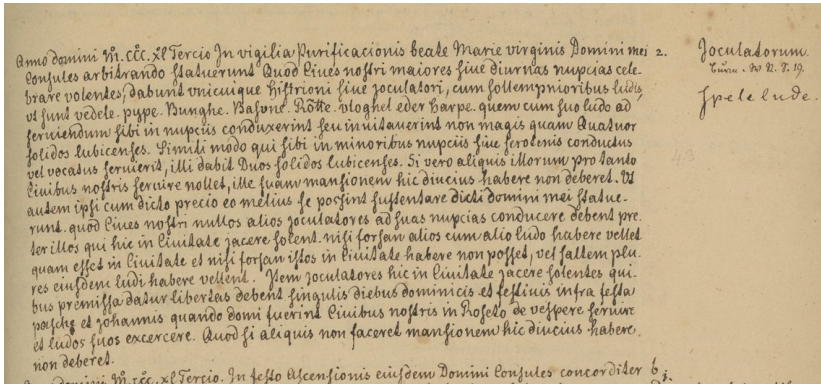 Anno domini M. CCC. xl Tercio In vigilia Purificacionis beate Marie virginis Domini mei 2. Joculatorum
Consules arbitrando statuerunt Quod Ciues nostri maiores siue diurnas nupcias cele-
brare volentes, dabunt vnicuique Histrioni siue joculatori, cum sollempnioribus ludis, Spelelude.
vt sunt vedele. pype. Bunghe. Basune. Rotte. vloghel eder Harpe. quem cum suo ludo ad
seruiendum sibi in nupciis conduxerint seu inuitauerint non magis quam Quatuor
solidos lubicenses. Simili modo qui sibi in minoribus nupciis siue serotenis conductus
vel vocatus seruierit, illi dabit Duos solidos lubicenses. Si vero aliquis illorum pro tanto
Ciuibus nostris seruire nollet, ille suam mansionem hic diucius habere non deberet. Vt
autem ipsi cum dicto precio eo melius se possint sustentare dicti domini mei statue-
runt. quod Ciues nostri nullos alios joculatores ad suas nupcias conducere debent pre-
ter illos qui hic in Ciuitate jacere solent. nisi forsan alios cum alio ludo habere vellet
quam esset in Ciuitate et nisi forsan istos in Ciuitate habere non posset, vel saltem plu-
res eiusdem ludi habere vellent. Item joculatores hic in Ciuitate jacere solentes qui-
bus premissa datur libertas debent singulis diebus dominicis et festiuis infra festa
pasche et johannis quando domi fuerint Ciuibus nostris in Roseto de vespere seruire
et ludos suos excercere. Quod si aliquis non faceret mansionem hic diucius habere
non deberet.
domini M. CCC. xl Tercio. In festo Ascensionis eiusdem Domini Consules concorditer